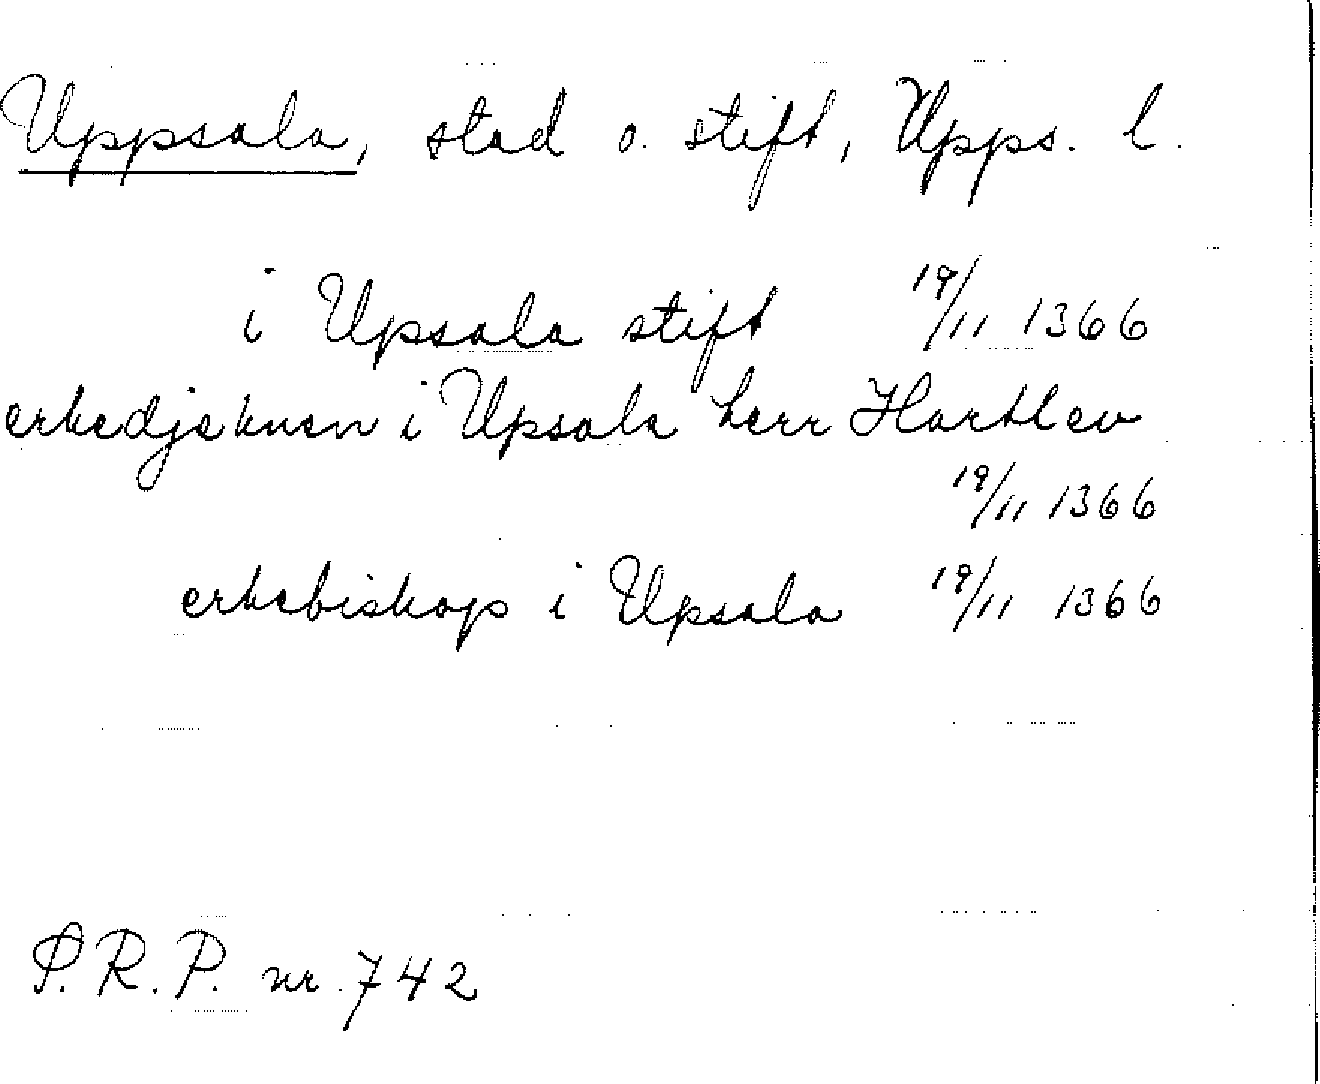 Uppsala, stad o. stift, Upps. l.
i Upsala stift 19/11 1366
erkedjeknen i Upsala herr Hartlev
19/11 1366
erkebiskop i Upsala 19/11 1366
P.R.P. nr. 742